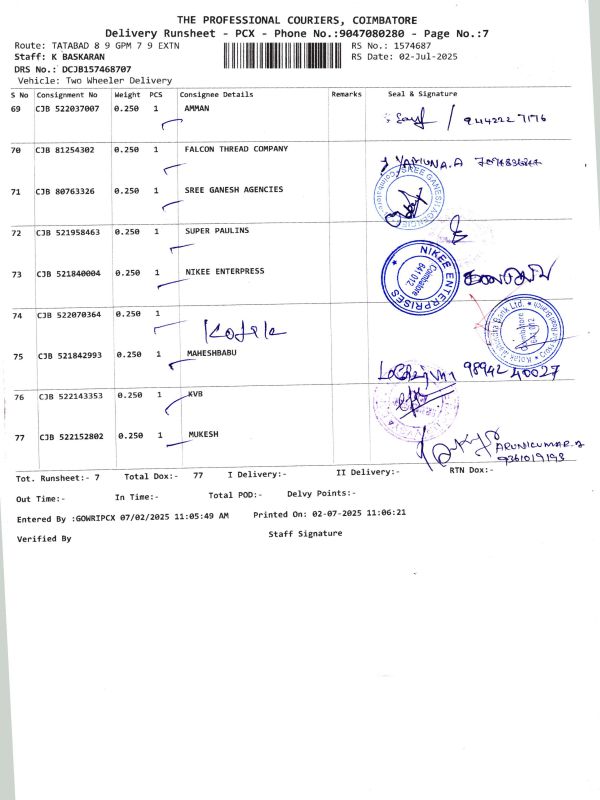 THE PROFESSIONAL COURIERS, COIMBATORE
Delivery Runsheet - PCX - Phone No.:9047080280 - Page No.:7
Route: TATABAD 8 9 GPM 7 9 EXTN RS No.: 1574687
Staff: K BASKARAN RS Date: 02-Jul-2025
DRS No.: DCJB157468707
Vehicle: Two Wheeler Delivery
S No Consignment No Weight PCS Consignee Details Remarks Seal & Signature
69 CJB 522037007 0.250 1 AMMAN
70 CJB 81254302 0.250 1 FALCON THREAD COMPANY YAMUNA.A
71 CJB 80763326 0.250 1 SREE GANESH AGENCIES SREE GANESH AGENCIES
72 CJB 521958463 0.250 1 SUPER PAULINS
73 CJB 521840004 0.250 1 NIKEE ENTERPRESS NIKEE ENTERPRISES Coimbatore 641 012
74 CJB 522070364 0.250 1
75 CJB 521842993 0.250 1 MAHESHBABU 98942 40027
76 CJB 522143353 0.250 1 KVB
77 CJB 522152802 0.250 1 MUKESH ARUNKUMAR
9361019193
Tot. Runsheet:- 7 Total Dox:- 77 I Delivery:- II Delivery:- RTN Dox:-
Out Time:- In Time:- Total POD:- Delvy Points:-
Entered By :GOWRIPCX 07/02/2025 11:05:49 AM Printed On: 02-07-2025 11:06:21
Verified By Staff Signature